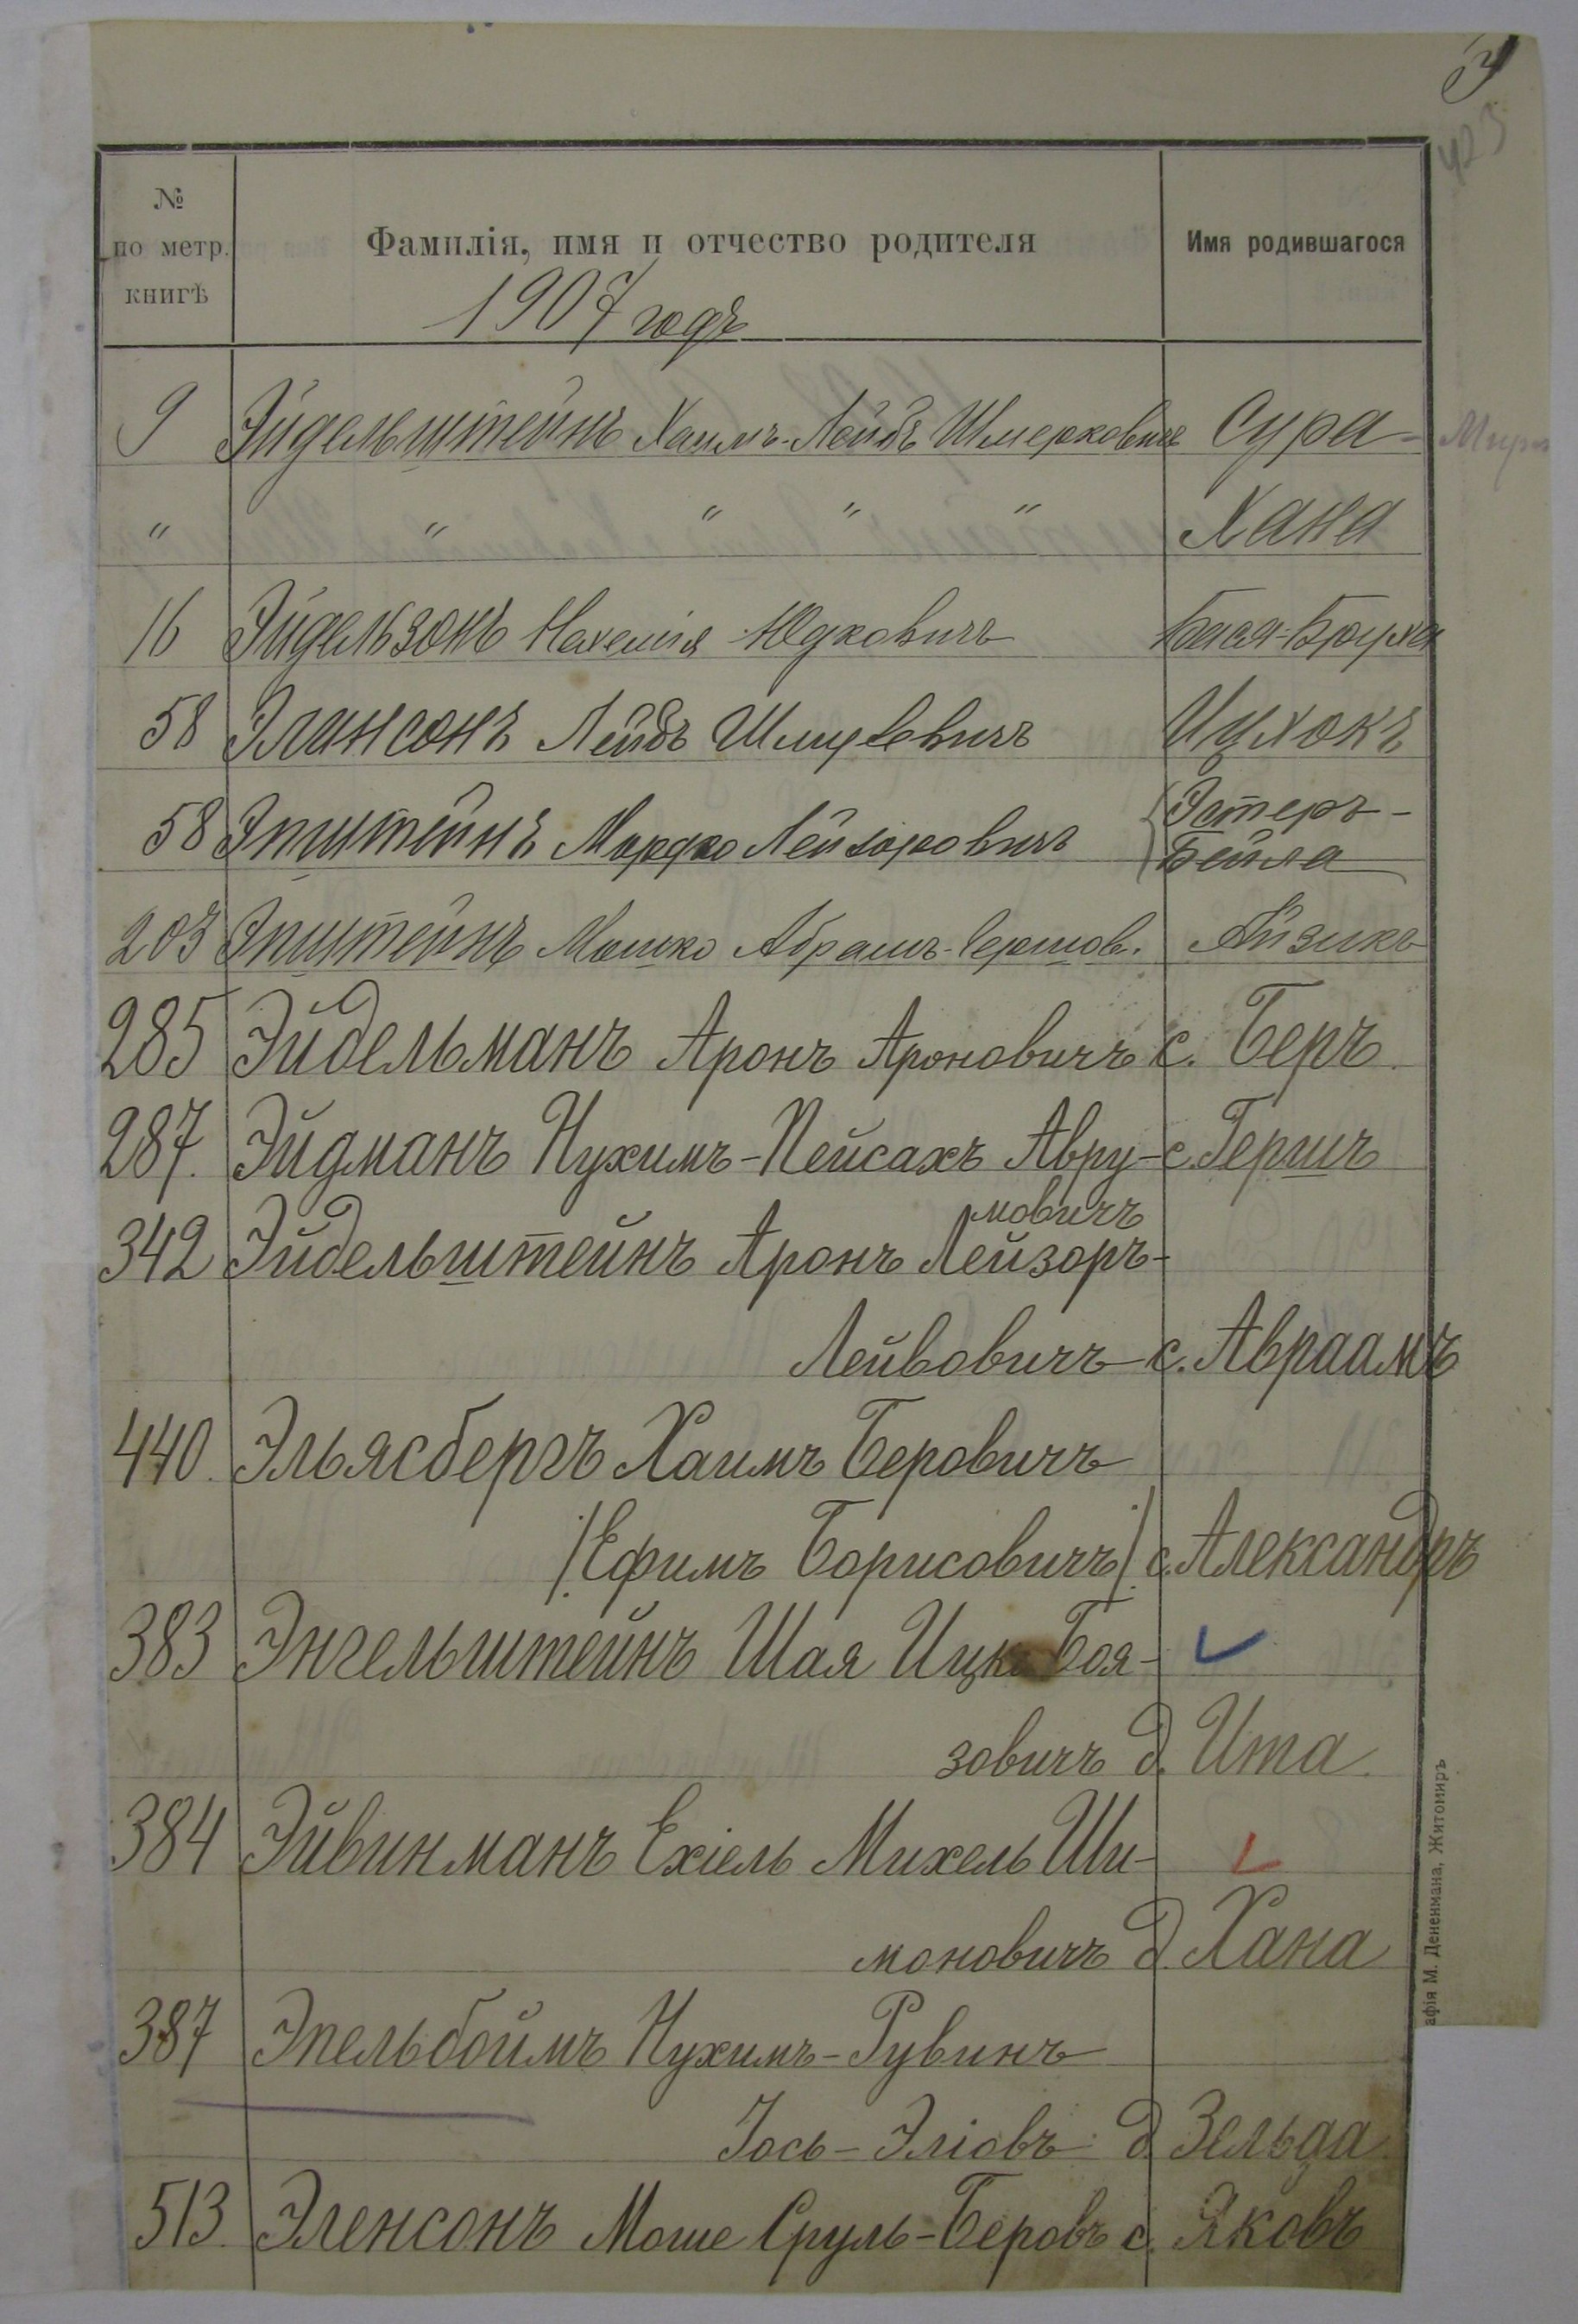 423
№ по метр. книгѣ
Фамилія, имя и отчество родителя
Имя родившагося
1907 годъ
9 Эйдельштейнъ Хаимъ-Лейбъ Шмерковичъ Сура-
" " " " " Хана
16 Эйдельзонъ Нехемія Юдковичъ Бася-Бруха
58 Элинсонъ Лейбъ Шмулевичъ Ицхокъ
58 Эпштейнъ Мордко Лейзоровичъ Эстеръ-
Бейла
203 Эпштейнъ Мошко Абрамъ-Гершов. Айзикъ
285 Эйдельманъ Аронъ Ароновичъ с. Беръ.
287. Эйдманъ Нухимъ-Пейсахъ Авру- с. Гершъ
мовичъ
342 Эйдельштейнъ Аронъ Лейзоръ-
Лейвовичъ с. Авраамъ
440. Эльясбергъ Хаимъ Беровичъ
/Ефимъ Борисовичъ/ с. Александръ
383 Энгельштейнъ Шая Ицко Боя-
зовичъ д. Ита.
384 Эйвинманъ Ехіель Михель Ши-
моновичъ д. Хана
387 Эпельбоймъ Нухимъ-Рувинъ
Іось-Эліовъ д. Зельда
513. Эленсонъ Моше Сруль-Беровъ с. Яковъ
афія М. Дененмана, Житомиръ